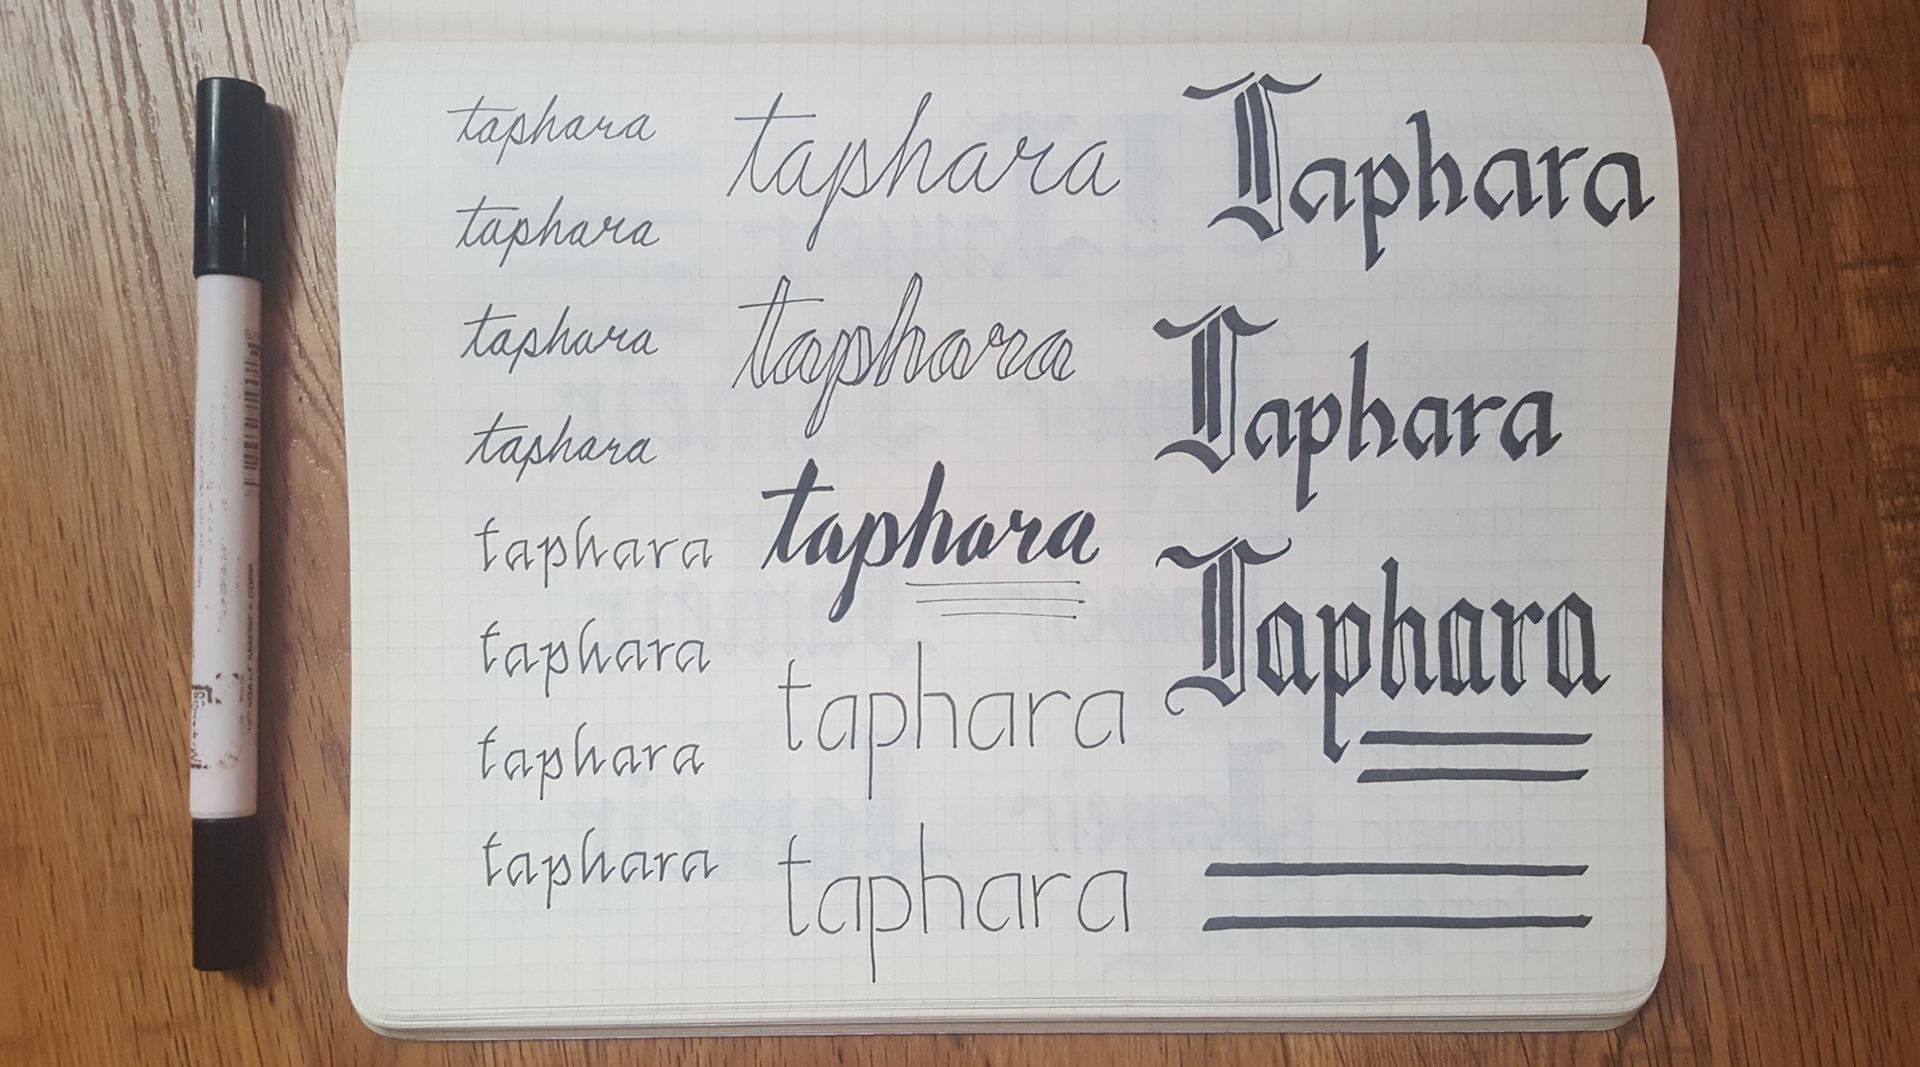 taphara
taphara
taphara
taphara
taphara
taphara
taphara
taphara
taphara
taphara
taphara
taphara
taphara
Taphara
Taphara
Taphara